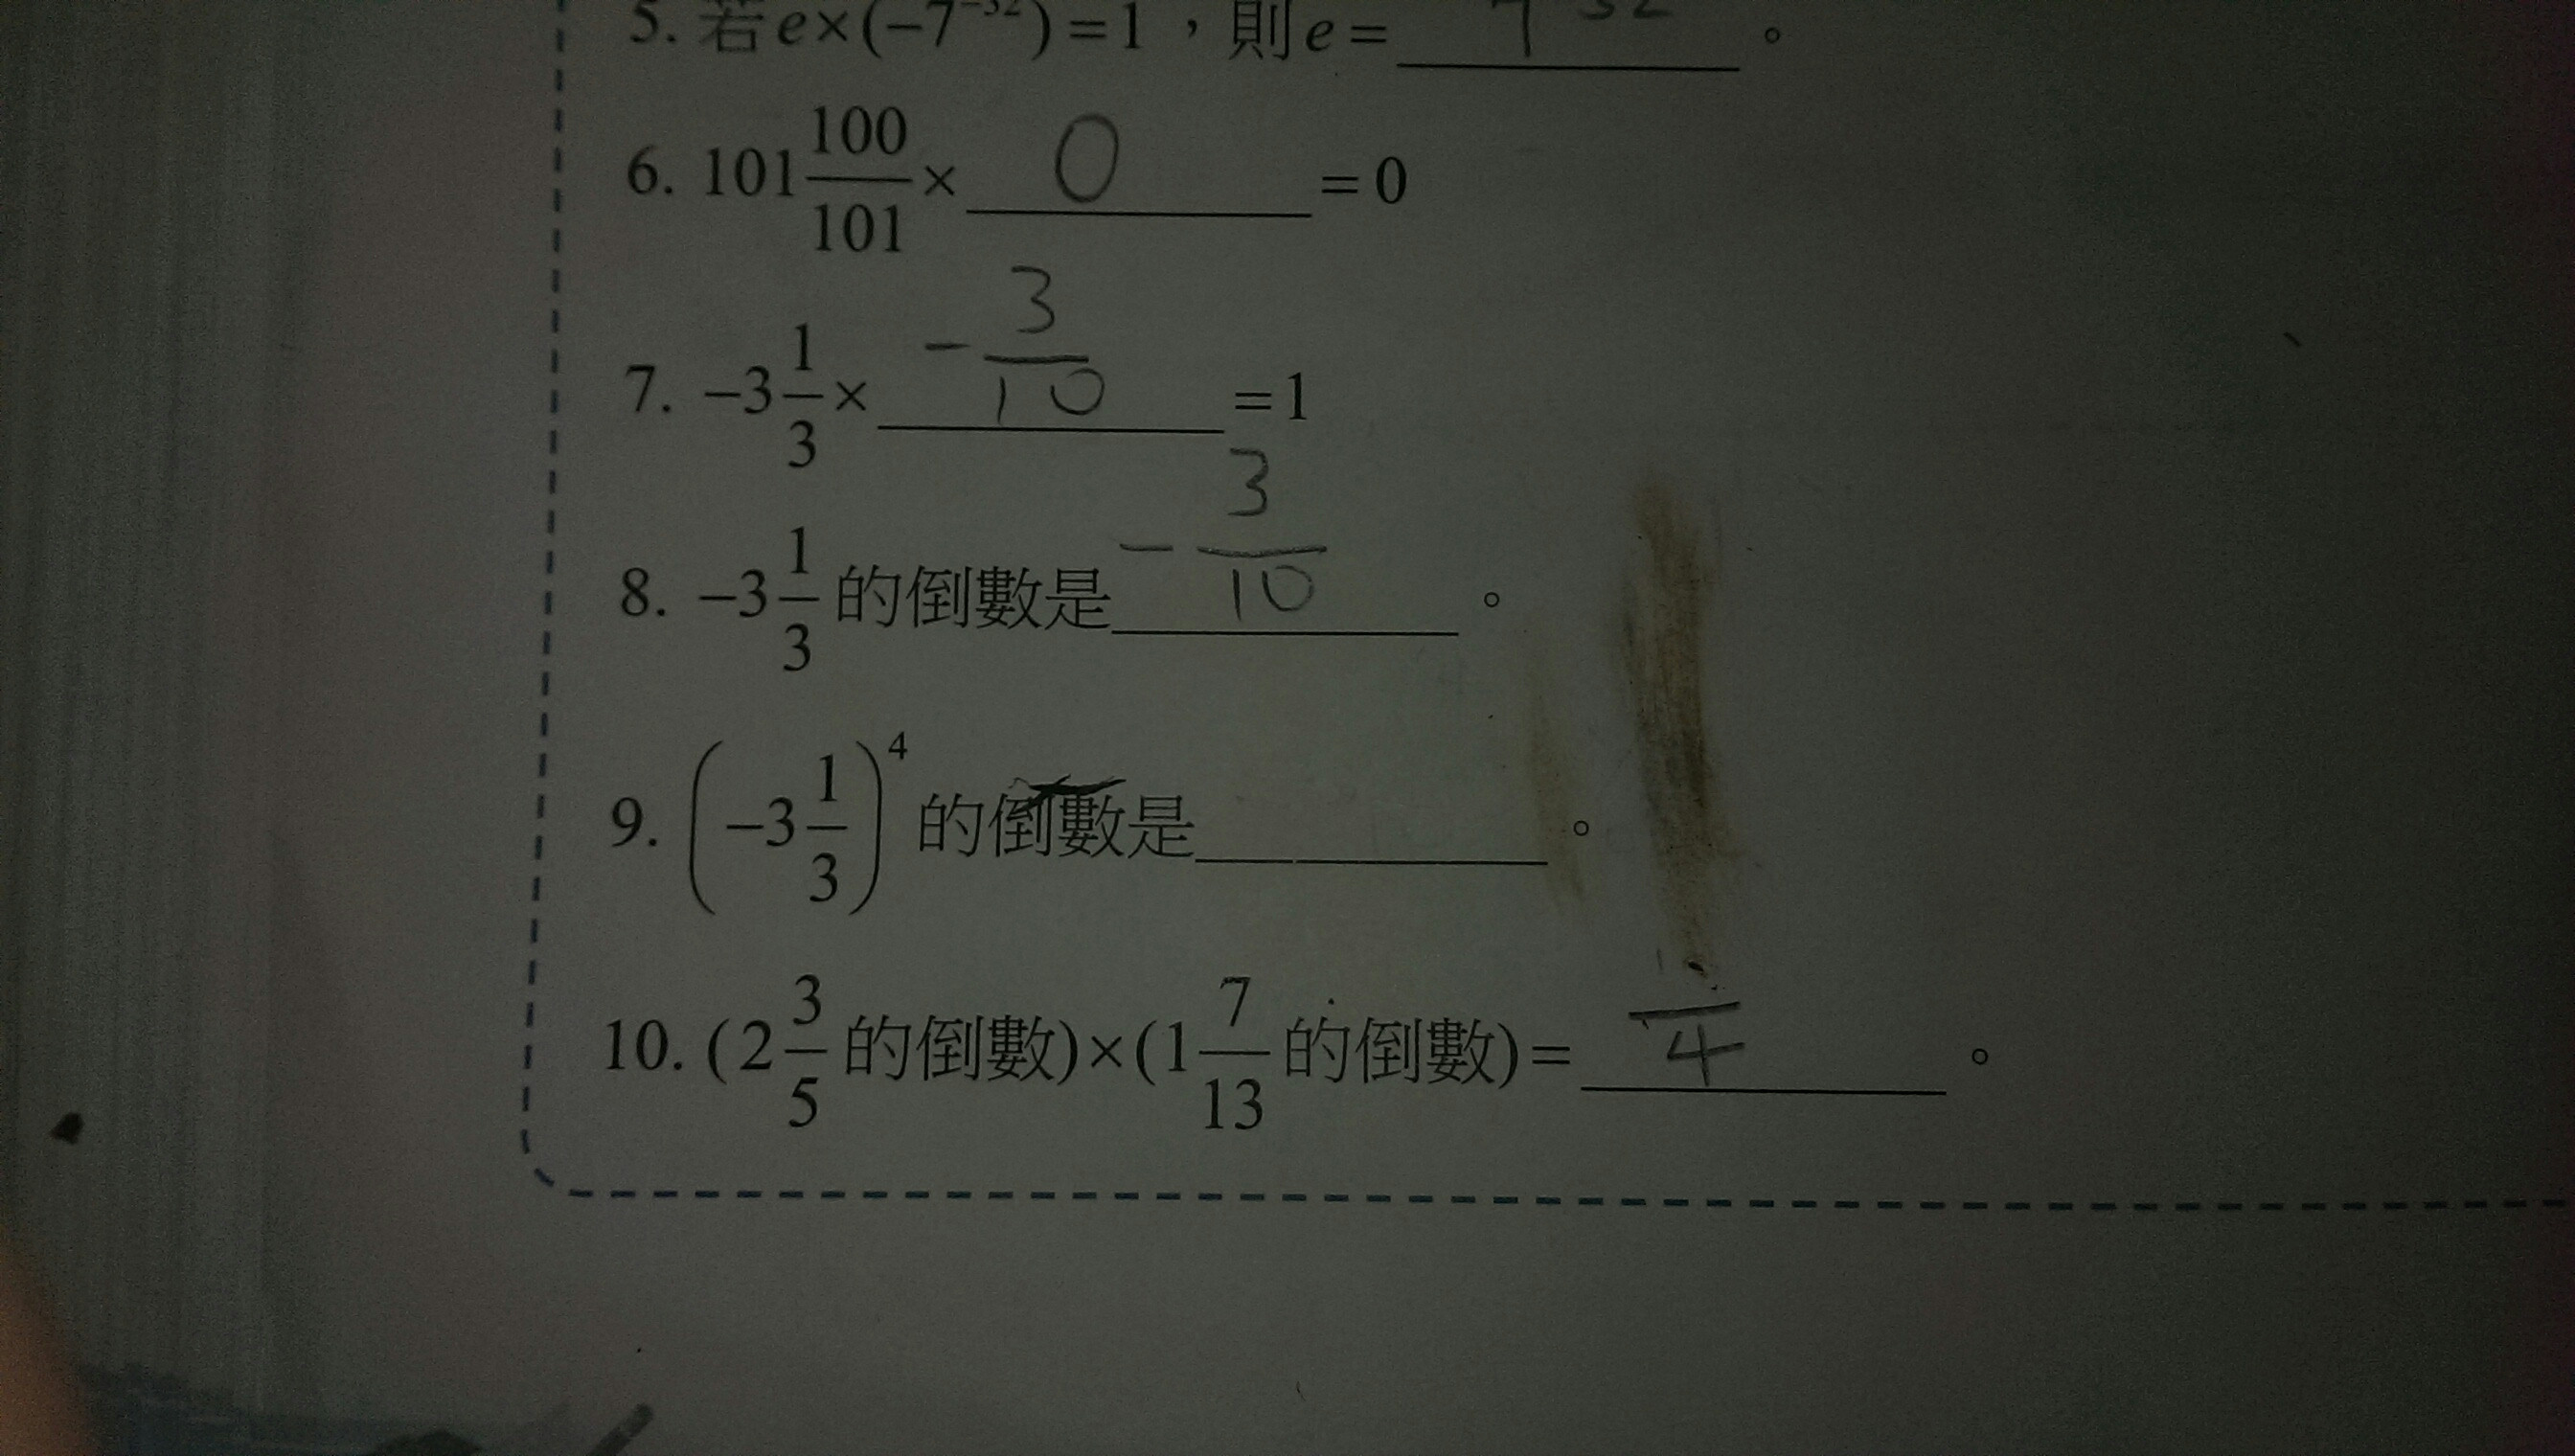 5. 若 e×(−7⁻³²)=1，則 e= 7 32 。
6. 101 100/101 × 0 =0
7. −3 1/3 × − 3/10 =1
8. −3 1/3 的倒數是 − 3/10 。
9. (−3 1/3)⁴ 的倒數是______。
10. (2 3/5 的倒數)×(1 7/13 的倒數)= /4 。